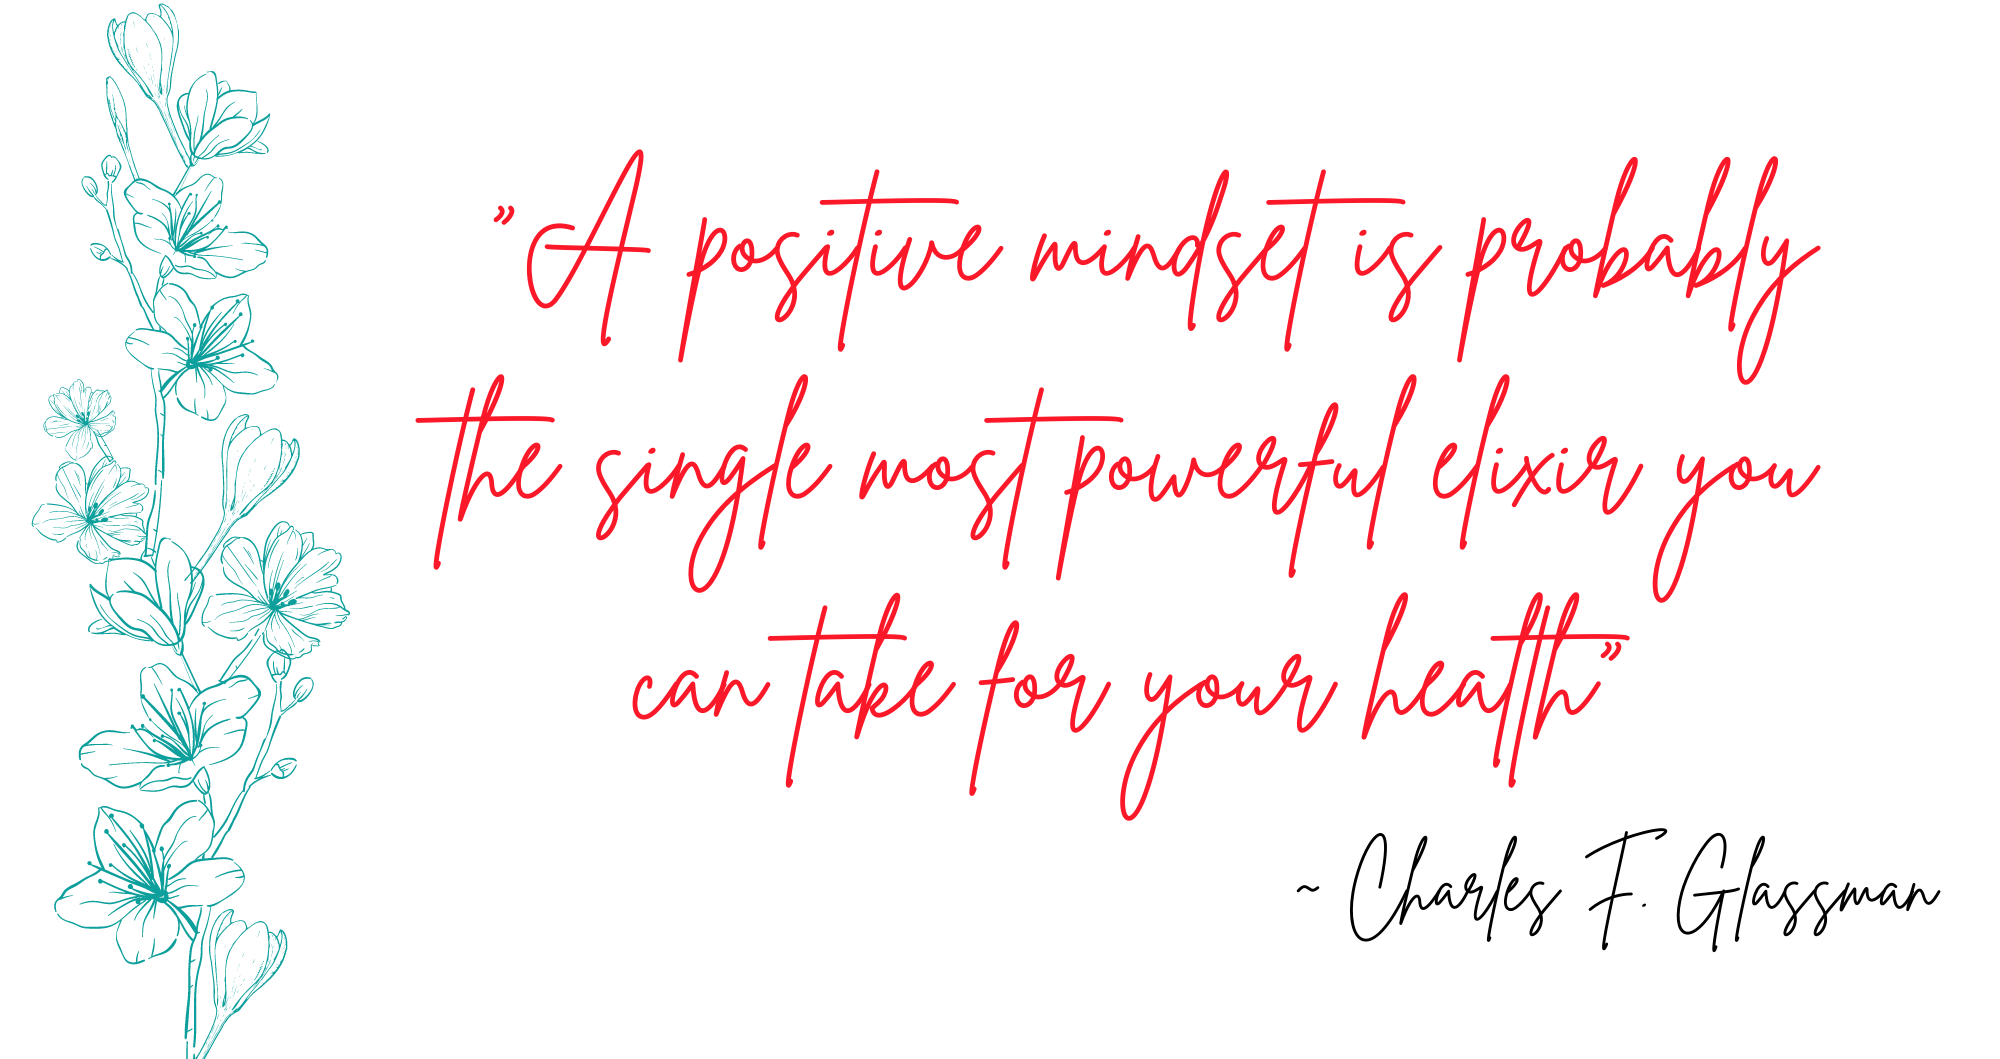 ”A positive mindset is probably
the single most powerful elixir you
can take for your health”
~ Charles F. Glassman